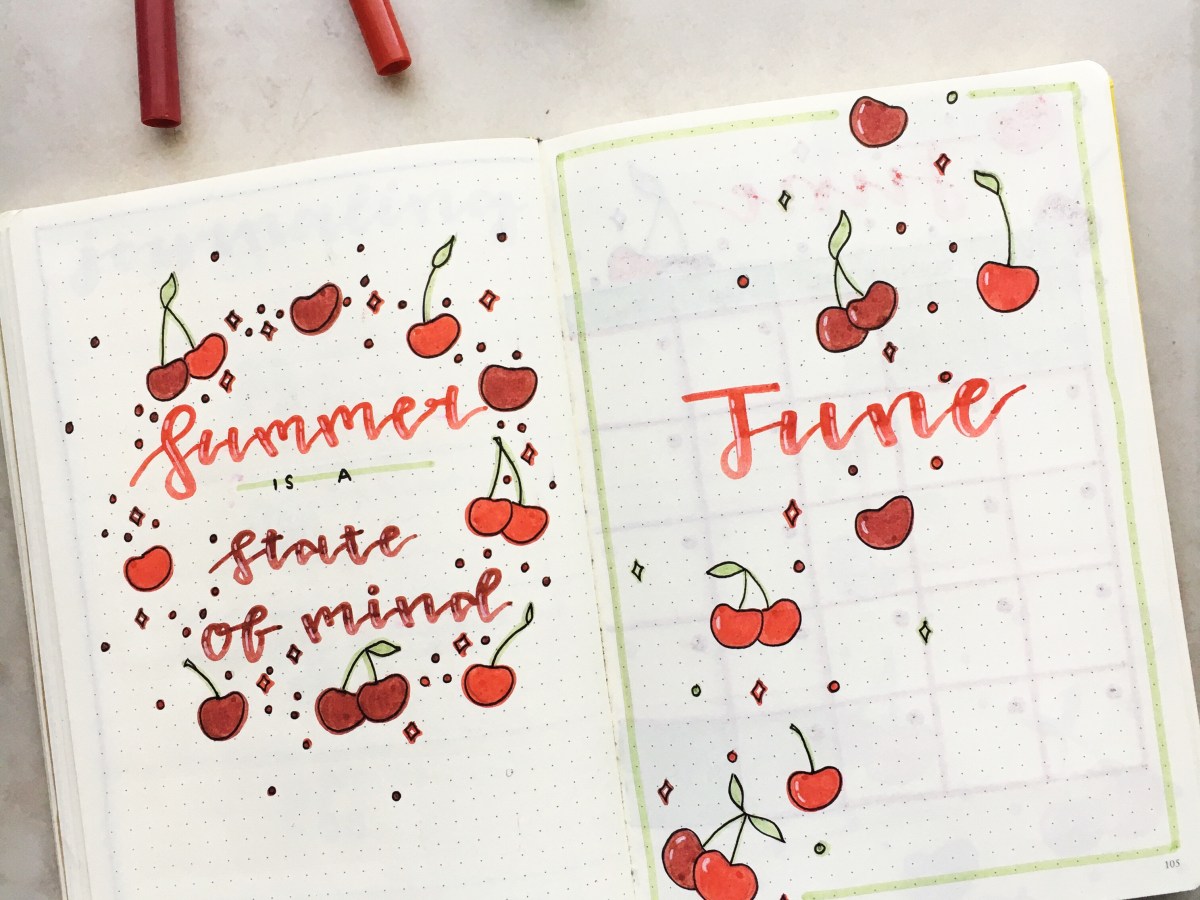 Summer
IS A
state
of mind
June
105